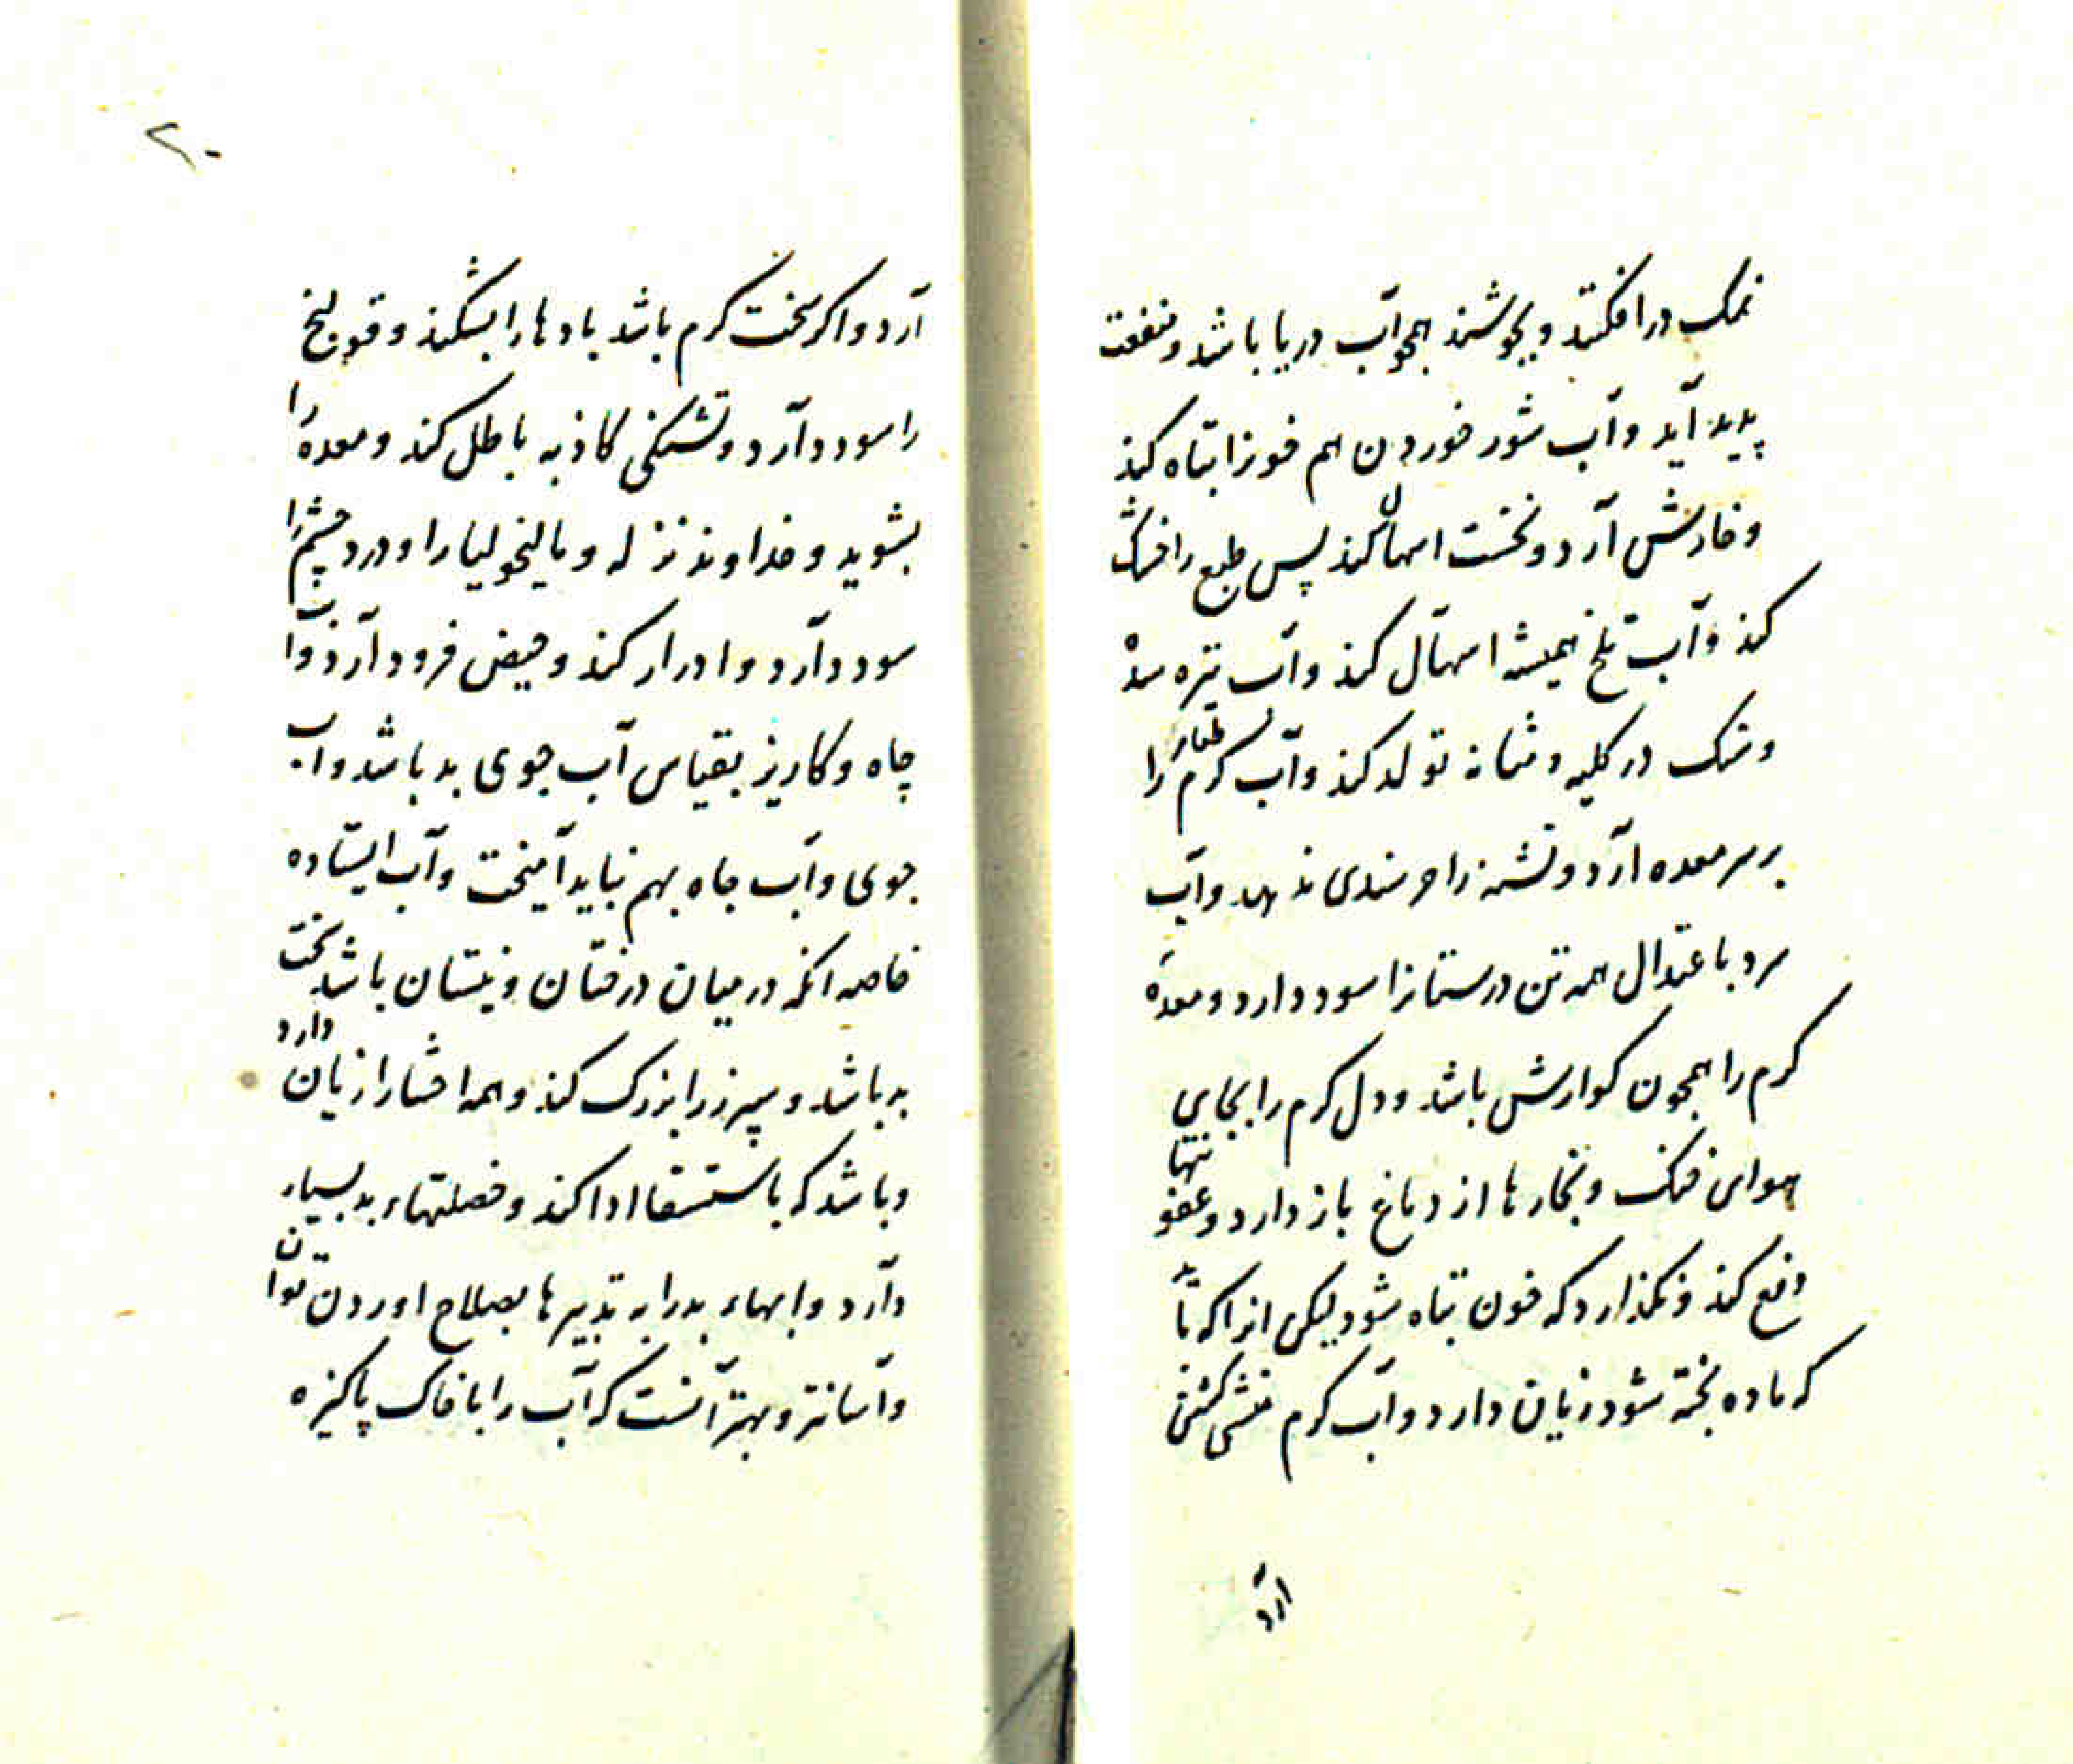 نمک درافکنند و بجوشند همچو آب دریا باشد و منفعت
پدید آید و آب شور خوردن هم خونرا تباه کند
و خارش آرد و نخست اسهال کند پس طبع را خشک
کند و آب تلخ همیشه اسهال کند و آب تیره سده
و سنک در کلیه و مثانه تولد کند و آب کرم طعام را
بر سر معده آرد و تشنه را خرسندی ندهد و آب
سرد باعتدال همه تن درستانرا سود دارد و معده
کرم را همچون کوارش باشد و دل کرم را بجای
هوای خنک و بخارها از دماغ باز دارد و عفونتها
دفع کند و نکذارد که خون تباه شود لیکن انرا که باید
که ماده پخته شود زیان دارد و آب کرم منش کشتن
آرد
۲۰
آرد و اکر سخت کرم باشد بادها را بشکند و قولنج
را سود دآرد و تشنکی کاذبه باطل کند و معده را
بشوید و خداوند نزله و مالیخولیا را و درد چشم را
سود دآرد و ادرار کند و حیض فرود آرد و آب
چاه و کاریز بقیاس آب جوی بد باشد و آب
جوی و آب چاه بهم نباید آمیخت و آب ایستاده
خاصه انکه در میان درختان و نیستان باشد سخت
بد باشد و سپرز را بزرک کند و همه احشا را زیان دارد
و باشد که باستسقا ادا کند و خصلتهاء بد بسیار
دآرد و ابهاء بد را به تدبیرها بصلاح اوردن توان
و آسانتر و بهتر آنست که آب را با خاک پاکیزه